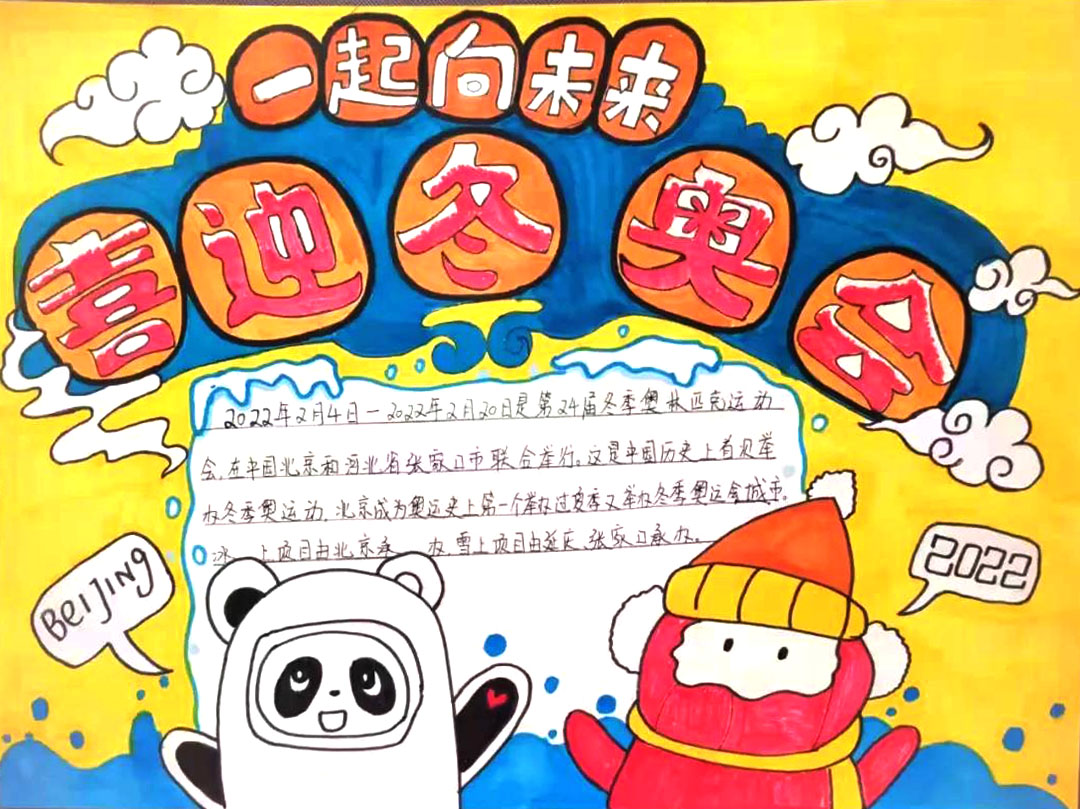 一起向未来
喜迎冬奥会
2022年2月4日—2022年2月20日是第24届冬季奥林匹克运动
会,在中国北京和河北省张家口市联合举行。这是中国历史上首次举
办冬季奥运动,北京成为奥运史上第一个举办过夏季又举办冬季奥运会城市。
冰 上项目由北京承 办,雪上项目由延庆、张家口承办。
BeiJING
2022